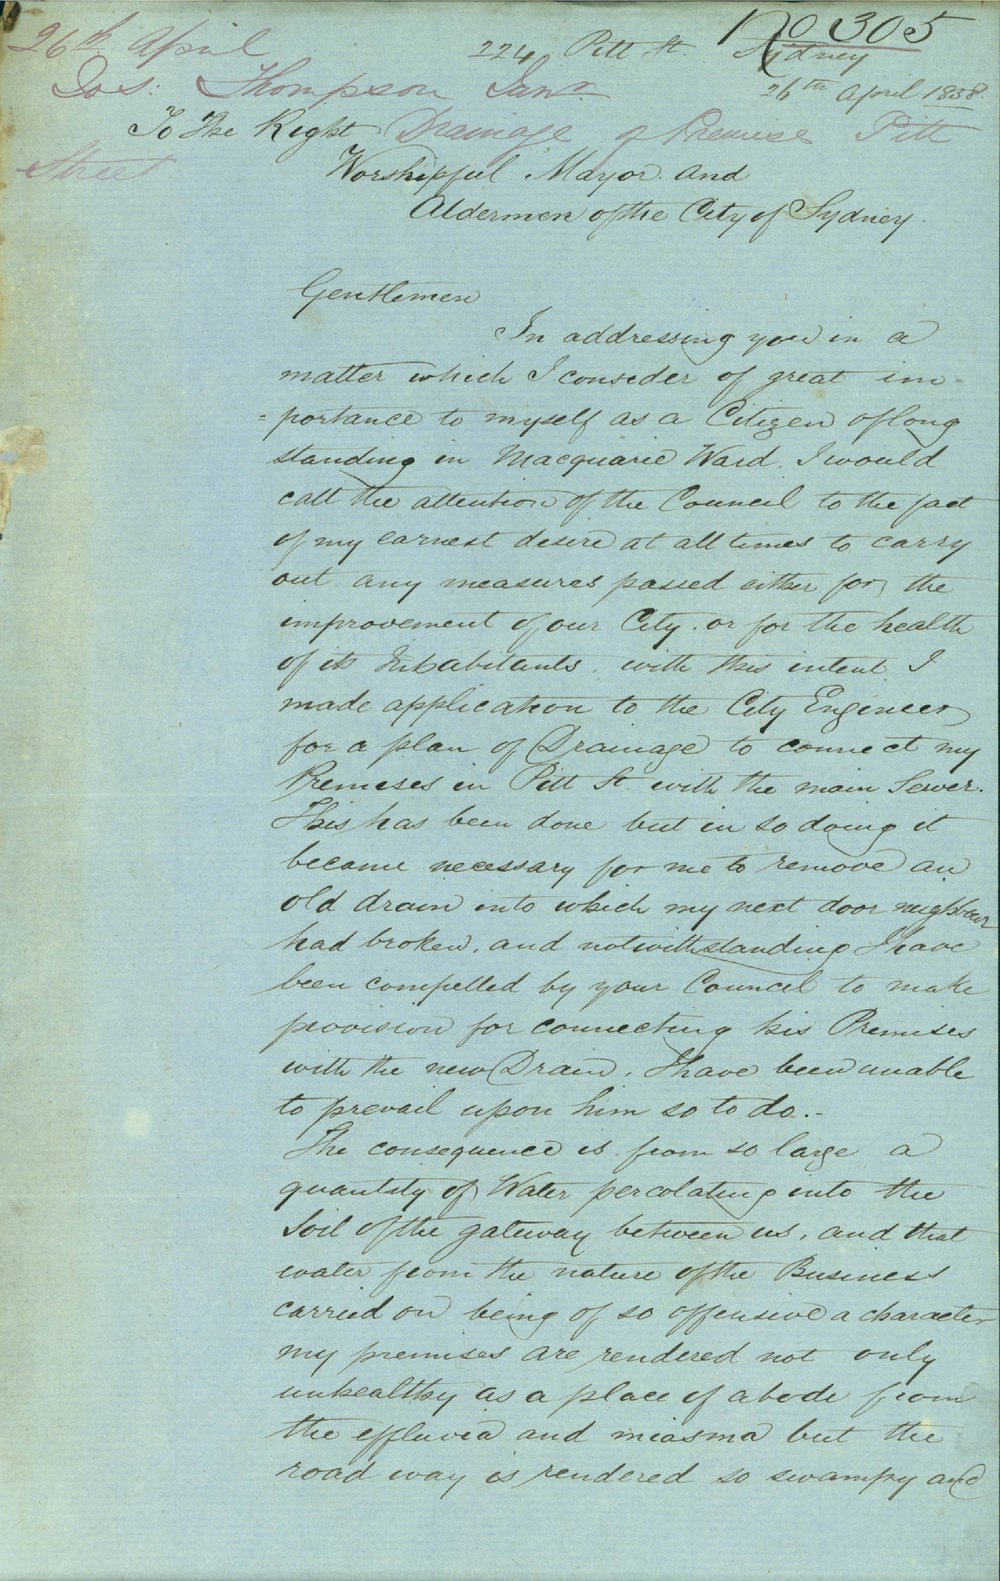 No 305
26th April
224 Pitt St. Sydney
Jos: Thompson Senr
26th April 1858.
To The Right
Drainage of Premise Pitt
Street
Worshipful Mayor and
Aldermen of the City of Sydney.
Gentlemen
In addressing you in a
matter which I consider of great im=
=portance to myself as a Citizen of long
standing in Macquarie Ward. I would
call the attention of the Council to the fact
of my earnest desire at all times to carry
out any measures passed either for the
improvement of our City. or for the health
of its Inhabitants. with this intent I
made application to the City Engineer
for a plan of Drainage to connect my
Premises in Pitt St. with the main Sewer.
This has been done but in so doing it
became necessary for me to remove an
old drain into which my next door neighbour
had broken, and notwithstanding I have
been compelled by your Council to make
provision for connecting his Premises
with the new Drain. I have been unable
to prevail upon him so to do.-
The consequence is from so large a
quantity of Water percolating into the
Soil of the gateway between us, and that
water from the nature of the Business
carried on being of so offensive a character
my premises are rendered not only
unhealthy as a place of abode from
the effluvia and miasma but the
road way is rendered so swampy and